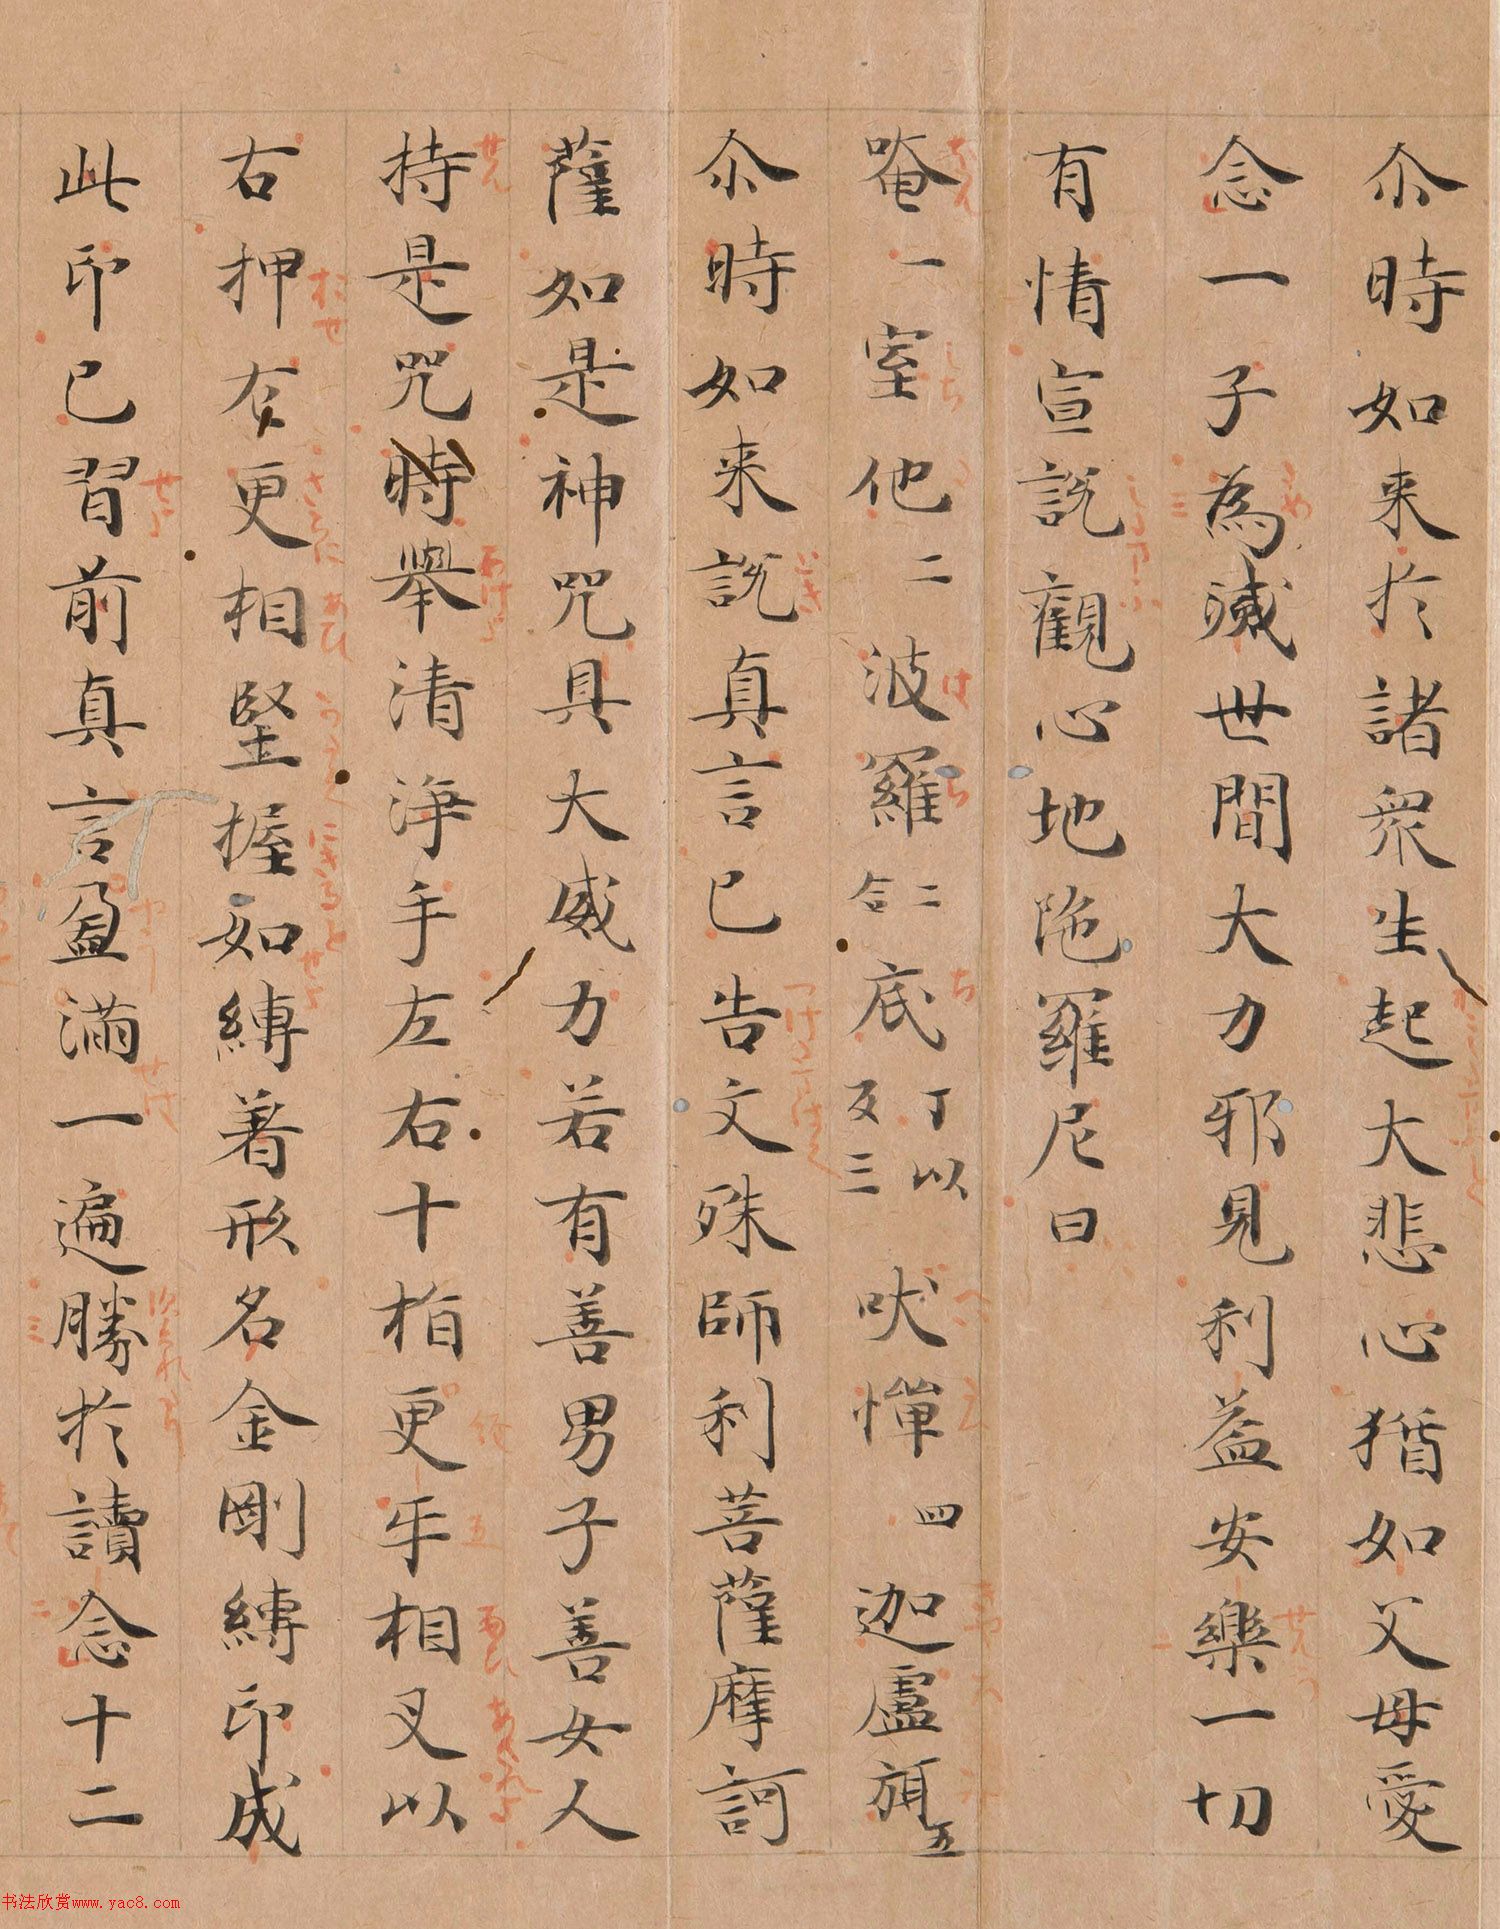 尒時如来於諸衆生起大悲心猶如父母愛
念一子為滅世間大力邪見利益安樂一切
有情宣說觀心地陁羅尼曰
唵一室他二波羅二合底丁以反三吠憚四迦盧弭五
尒時如来說真言已告文殊師利菩薩摩訶
薩如是神咒具大威力若有善男子善女人
持是咒時舉清淨手左右十指更乎相叉以
右押左更相堅握如縛著形名金剛縛印成
此印已習前真言盈滿一遍勝於讀念十二
书法欣赏www.yac8.com